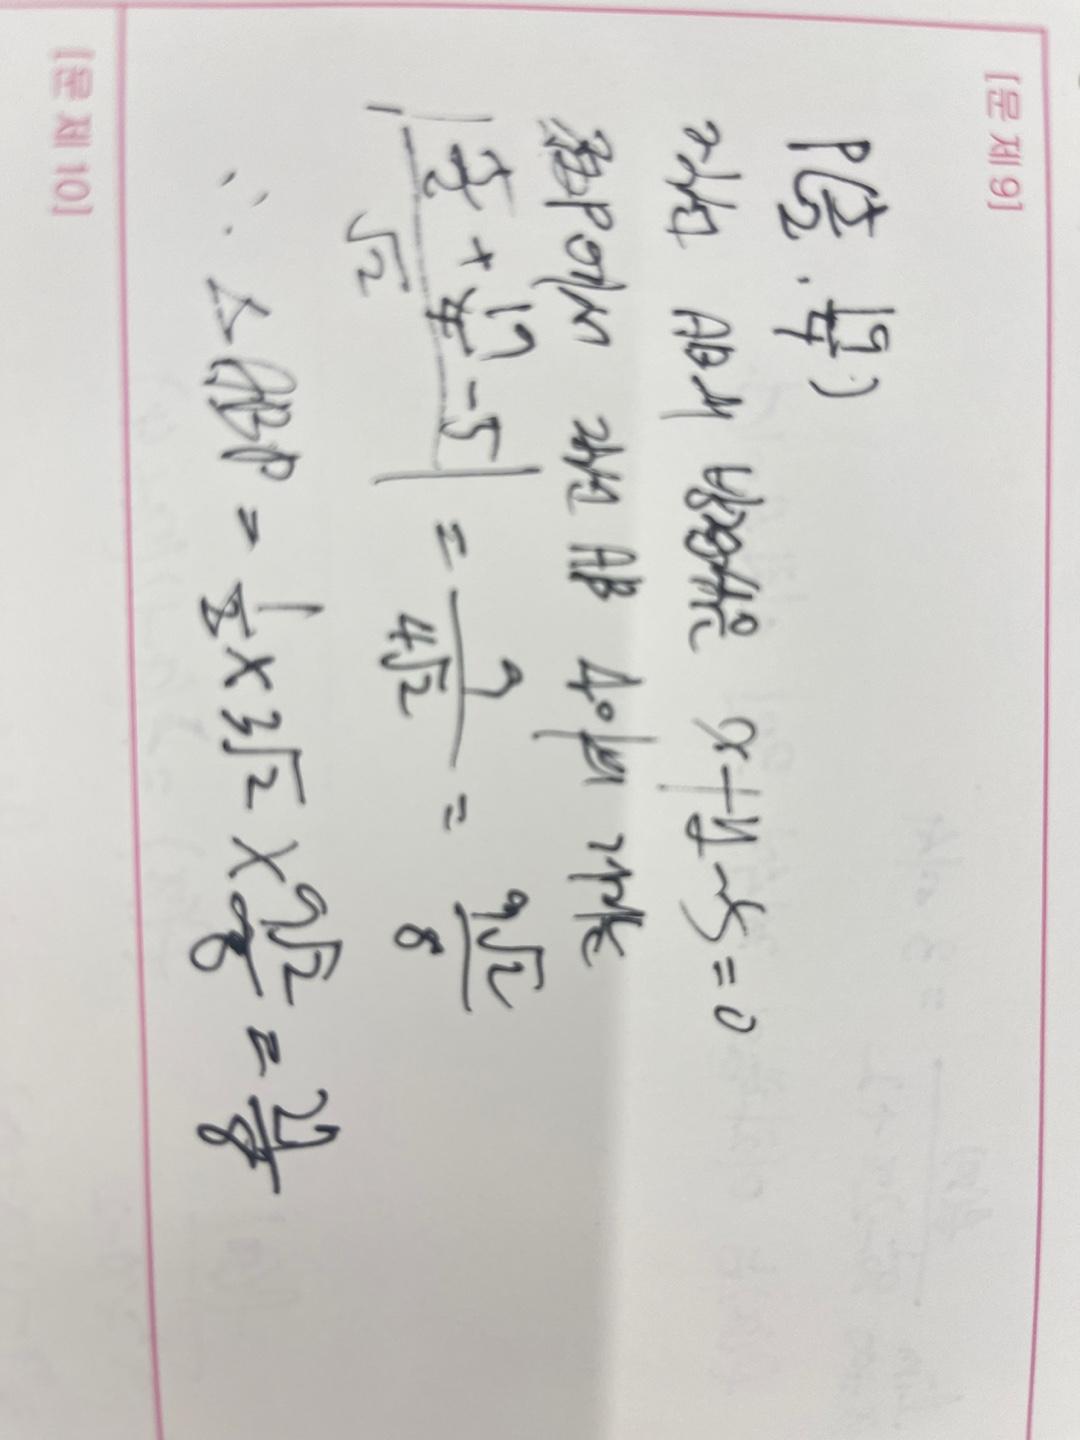 [문제 9]
P(5/2, 17/4)
직선 AB의 방정식은 x+y-5=0
점P에서 직선 AB 사이의 거리는
|5/2 + 17/4 - 5| / √2 = 7/4√2 = 9√2/8
∴ △ABP = 1/2 × 3√2 × 9√2/8 = 27/8
[문제 10]